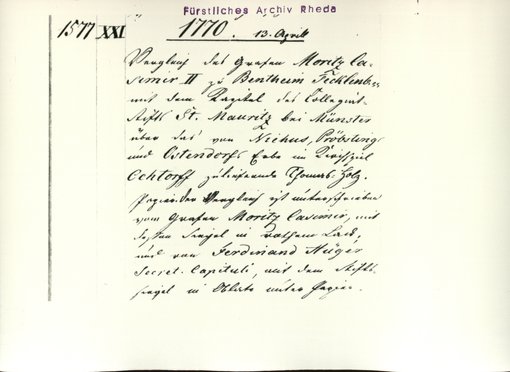 Fürstliches Archiv Rheda
1577 XXI 1770. 13. April
Vergleich des Grafen Moritz Ca-
simir II zu Bentheim Tecklenburg
mit dem Kapitel des Collegiat-
stifts St. Mauritz bei Münster
über das von Niehus, Pröbsting
und Ostendorfs Erbe im Kirchspiel
Ochtorff zu liefernde Thomas Holz.
Papier. Der Vergleich ist unterschrieben
vom Grafen Moritz Casimir, mit
dessen Siegel in rothem Lack,
und von Ferdinand Hüger
Secret. Capituli, mit dem Stifts-
siegel in Oblate unter Papier.